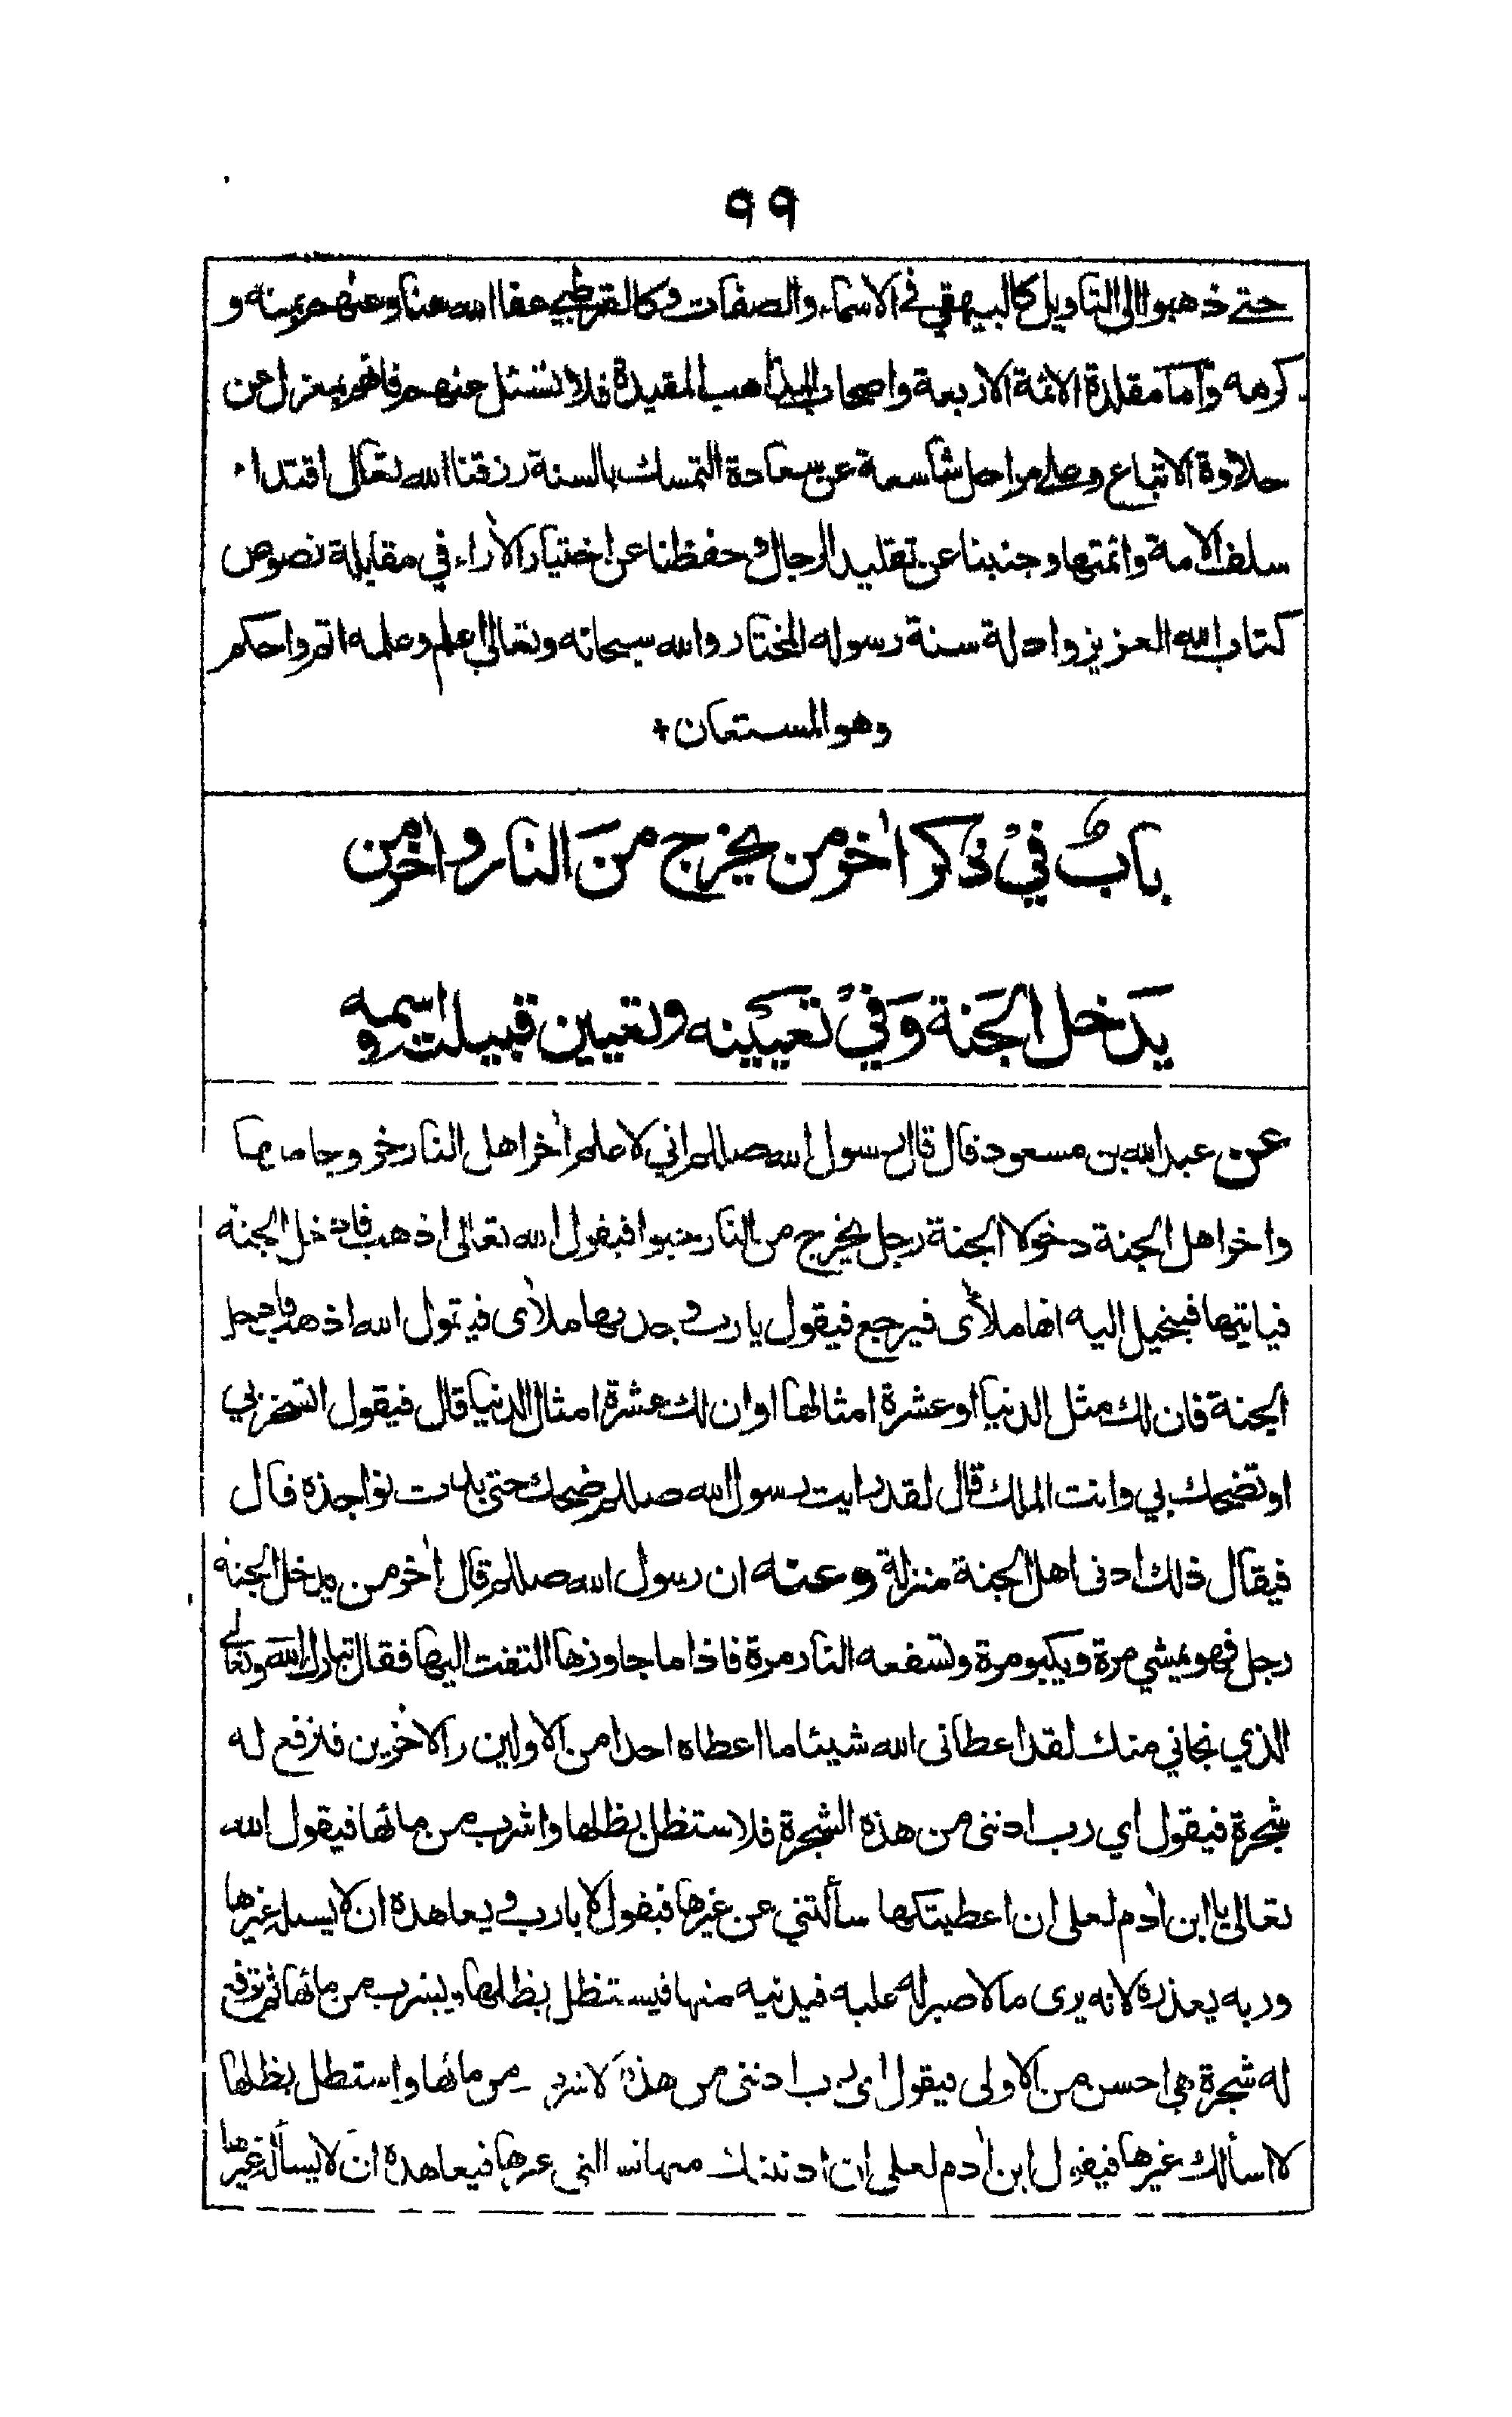 ٩٩
حتے ذهبوا الى التاويل كالبيهقي في الاسماء والصفات وكالقرطبي عفا الله عنا وعنهم بمنه و
كرمه واما مقلدة الائمة الاربعة واصحاب المذاهب المقيدة فلا تسئل عنهم فانهم بمعزل عن
حلاوة الاتباع وعلى مراحل شاسعة عن سعادة التمسك بالسنة رزقنا الله تعالى اقتداء
سلف الامة وائمتها وجنبنا عن تقليد الرجال وحفظنا عن اختيار الأراء في مقابلة نصوص
كتاب الله العزيز وادلة سنة رسوله المختار والله سبحانه وتعالى اعلم وعلمه اتم واحكم
وهو المستعان +
بابٌ فيْ ذكر اٰخر من يخرج منَ النار واٰخر من
يَدخل الجَنة وَفيْ تعيينه وتعيين قبيلته واسمه
عن عبد الله بن مسعود قال قال رسول الله صللم اني لاعلم اٰخر اهل النار خروجا منها
واخر اهل الجنة دخولا الجنة رجل يخرج من النار حبوا فيقول الله تعالى اذهب فادخل الجنة
فياتيها فيخيل اليه انها ملأى فيرجع فيقول يا رب وجدتها ملأى فيقول الله اذهب فادخل
الجنة فان لك مثل الدنيا او عشرة امثالها او ان لك عشرة امثال الدنيا قال فيقول اتسخر بي
او تضحك بي وانت الملك قال لقد رايت رسول الله صللم ضحك حتى بدت نواجذه قال
فيقال ذلك ادنى اهل الجنة منزلة وعنه ان رسول الله صللم قال اٰخر من يدخل الجنة
رجل فهو يمشي مرة ويكبو مرة وتسفعه النار مرة فاذا ما جاوزها التفت اليها فقال تبارك الله وتعالى
الذي نجاني منك لقد اعطانى الله شيئا ما اعطاه احدا من الاولين والاٰخرين فترفع له
شجرة فيقول اي رب ادننى من هذه الشجرة فلاستظل بظلها واشرب من مائها فيقول الله
تعالى يا ابن اٰدم لعلى ان اعطيتكها سألتني عن غيرها فيقول لا يا رب ويعاهده ان لا يسله غيرها
وربه يعذره لانه يرى ما لا صبر له عليه فيدنيه منها فيستظل بظلها ويشرب من مائها ثم ترفع
له شجرة هي احسن من الاولى فيقول اى رب ادننى من هذه لاشرب من مائها واستظل بظلها
لا اسألك غيرها فيقول ابن اٰدم لعلى ان ادنيتك منها تسألنى غيرها فيعاهده ان لا يسأله غيرها